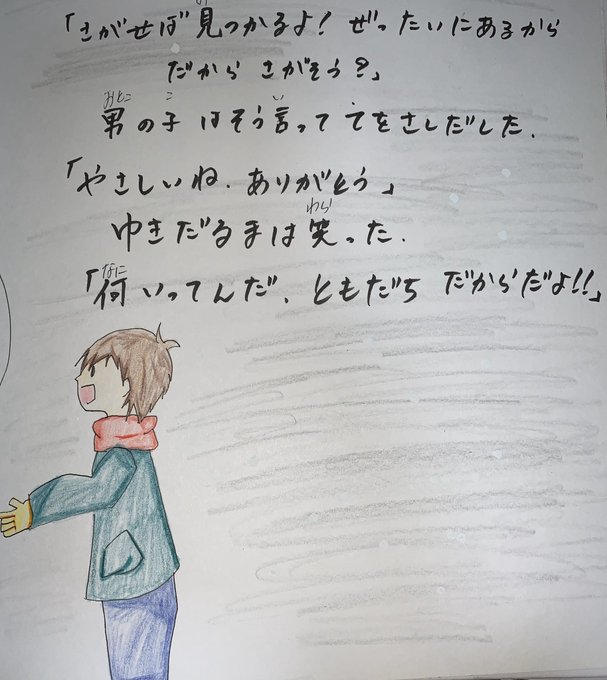 「さがせば見つかるよ！ぜったいにあるから
だからさがそう？」
男の子はそう言っててをさしだした.
「やさしいね.ありがとう」
ゆきだるまは笑った.
「何いってんだ、ともだちだからだよ!!」